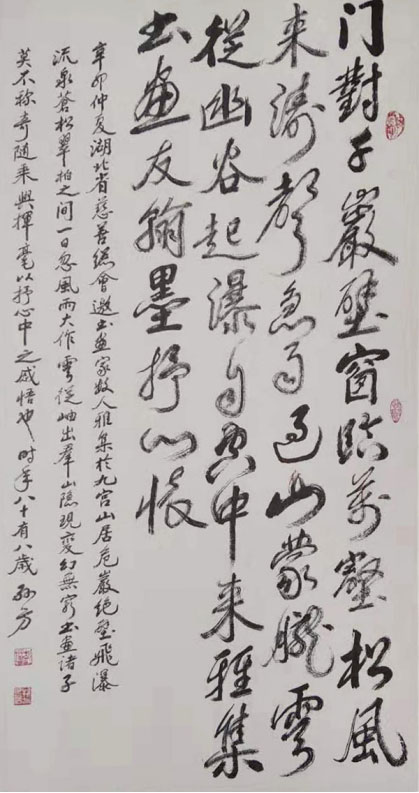 门對千巖壁窗臨萬壑松風
来濤聲急雨過山蒙朧雲
從幽谷起瀑自空中来雅集
书畫友翰墨抒心懷
辛卯仲夏湖北省慈善總會邀书畫家數人雅集於九宫山居危巖絶壁飛瀑
流泉蒼松翠柏之間一日忽風雨大作雲從岫出羣山隐現變幻無窮书畫诸子
莫不称奇随乘興揮毫以抒心中之感悟也时年八十有八歲 孙方